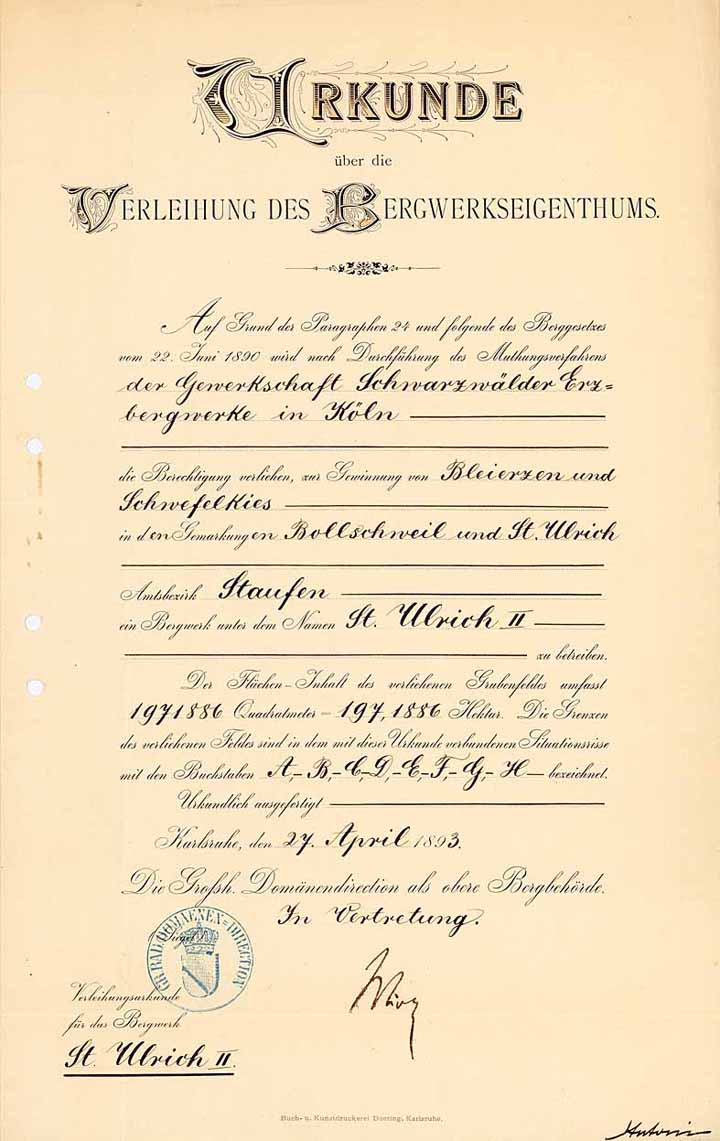 URKUNDE
über die
VERLEIHUNG DES BERGWERKSEIGENTHUMS.
Auf Grund der Paragraphen 24 und folgende des Berggesetzes
vom 22. Juni 1890 wird nach Durchführung des Muthungsverfahrens
der Gewerkschaft Schwarzwälder Erz=
bergwerke in Köln
die Berechtigung verliehen, zur Gewinnung von Bleierzen und
Schwefelkies
in den Gemarkungen Bollschweil und St. Ulrich
Amtsbezirk Staufen
ein Bergwerk unter dem Namen St. Ulrich II
zu betreiben.
Der Flächen-Inhalt des verliehenen Grubenfeldes umfasst
1971886 Quadratmeter = 197,1886 Hektar. Die Grenzen
des verliehenen Feldes sind in dem mit dieser Urkunde verbundenen Situationsrisse
mit den Buchstaben A,-B,-C,-D,-E,-F,-G,-H- bezeichnet.
Urkundlich ausgefertigt
Karlsruhe, den 27. April 1893.
Die Grossh. Domänendirection als obere Bergbehörde.
In Vertretung.
(Siegel)
GR. BAD. DOMAENEN=DIRECTION
Verleihungsurkunde
für das Bergwerk
St. Ulrich II.
Buch- u. Kunstdruckerei Doering, Karlsruhe.